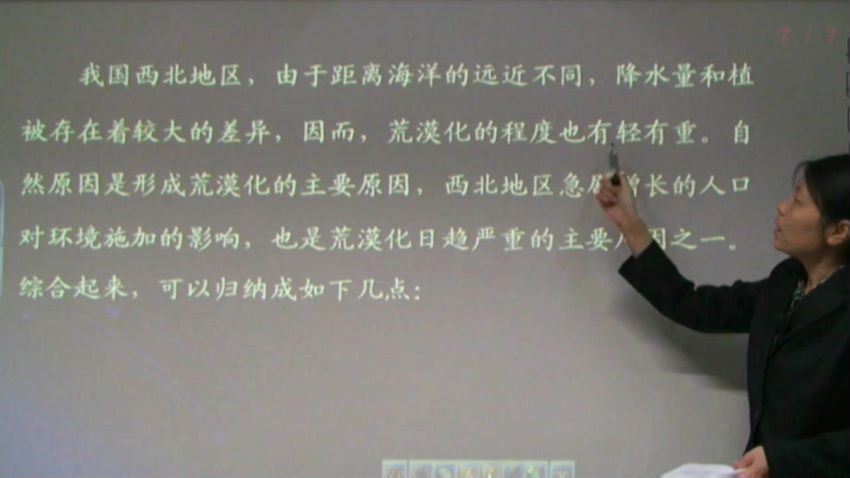 7/7
我国西北地区，由于距离海洋的远近不同，降水量和植
被存在着较大的差异，因而，荒漠化的程度也有轻有重。自
然原因是形成荒漠化的主要原因，西北地区急 增长的人口
对环境施加的影响，也是荒漠化日趋严重的主要 因之一。
综合起来，可以归纳成如下几点：